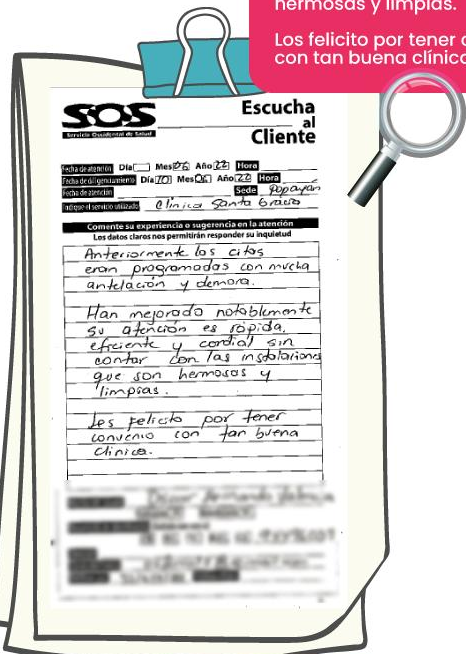 hermosas y limpias.
Los felicito por tener
con tan buena clínica
SOS
Servicio Occidental de Salud
Escucha
al
Cliente
Fecha de atención Día Mes 06 Año 22 Hora
Fecha de diligenciamiento Día 10 Mes 06 Año 22 Hora
Fecha de atención Sede Popayán
Indique el servicio utilizado Clinica Santa Gracia
Comente su experiencia o sugerencia en la atención
Los datos claros nos permitirán responder su inquietud
Anteriormente las citas
eran programadas con mucha
antelación y demora.
Han mejorado notablemente
su atención es rápida,
eficiente y cordial sin
contar con las instalaciones
que son hermosas y
limpias.
Les felicito por tener
convenio con tan buena
clinica.